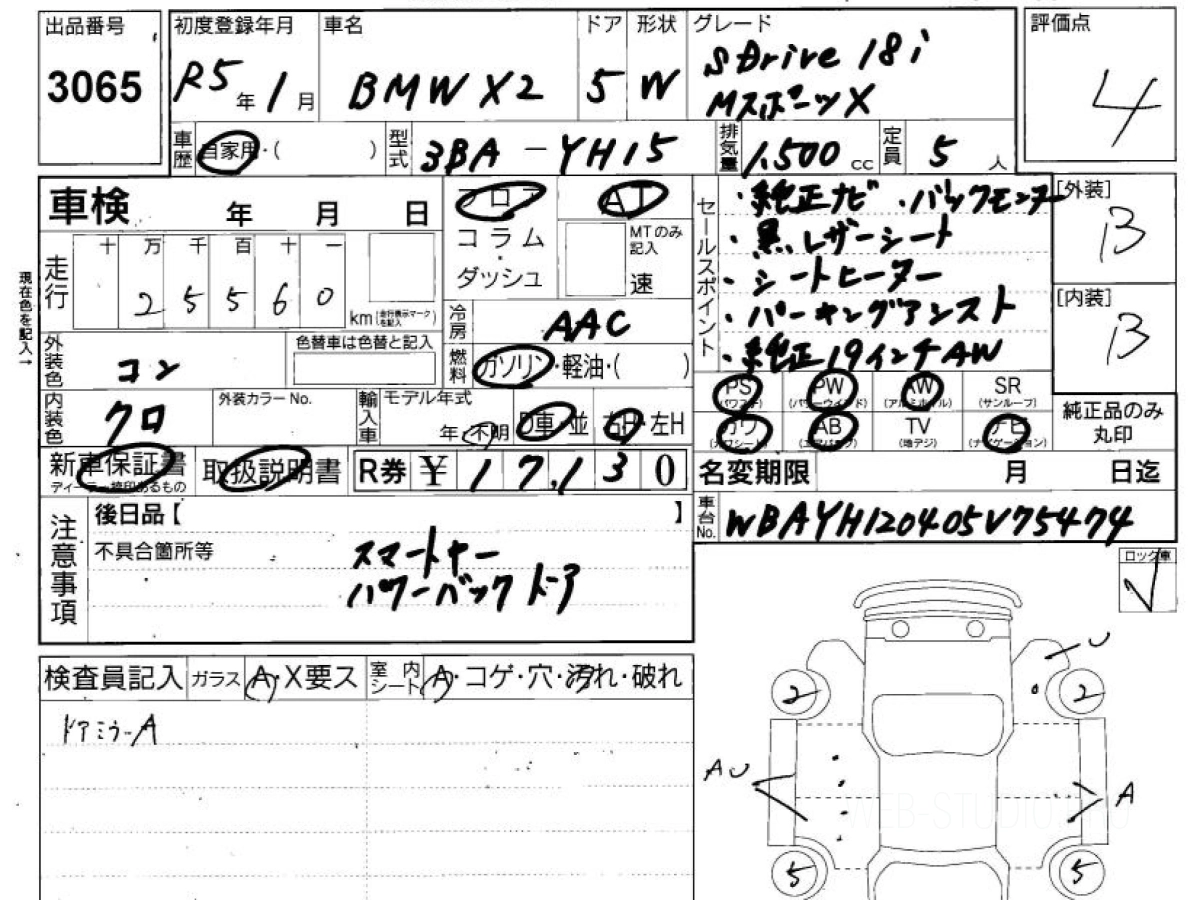 出品番号
3065
初度登録年月
R5年1月
車名
BMW X2
ドア
5
形状
W
グレード
sDrive 18i
MスポーツX
評価点
4
車歴
自家用・( )
型式
3BA-YH15
排気量
1,500cc
定員
5人
車検
年 月 日
フロア
コラム
・
ダッシュ
AT
MTのみ記入
速
走行
十万千百十一
25560
km(走行表示マークを記入)
現在色を記入→
冷房
AAC
燃料
ガソリン・軽油・( )
外装色
コン
色替車は色替と記入
内装色
クロ
外装カラーNo.
輸入車
モデル年式
年・不明
D車・並
右H・左H
セールスポイント
・純正ナビ ・バックモニター
・黒レザーシート
・シートヒーター
・パーキングアシスト
・純正19インチAW
[外装]
B
[内装]
B
PS
(パワステ)
PW
(パワーウインド)
AW
(アルミホイル)
SR
(サンルーフ)
カワ
(カワシート)
AB
(エアバック)
TV
(地デジ)
ナビ
(ナビゲーション)
純正品のみ
丸印
新車保証書
ディーラー捺印あるもの
取扱説明書
R券
¥17,130
名変期限
月 日迄
車台No.
WBAYH120405V75474
注意事項
後日品【 】
不具合箇所等
スマートキー
パワーバックドア
ロック車
検査員記入
ガラス
A・X要ス
室内シート
A・コゲ・穴・汚れ・破れ
ドアミラーA
U
2
2
AU
A
5
5
WEB-STUDIO.PRO